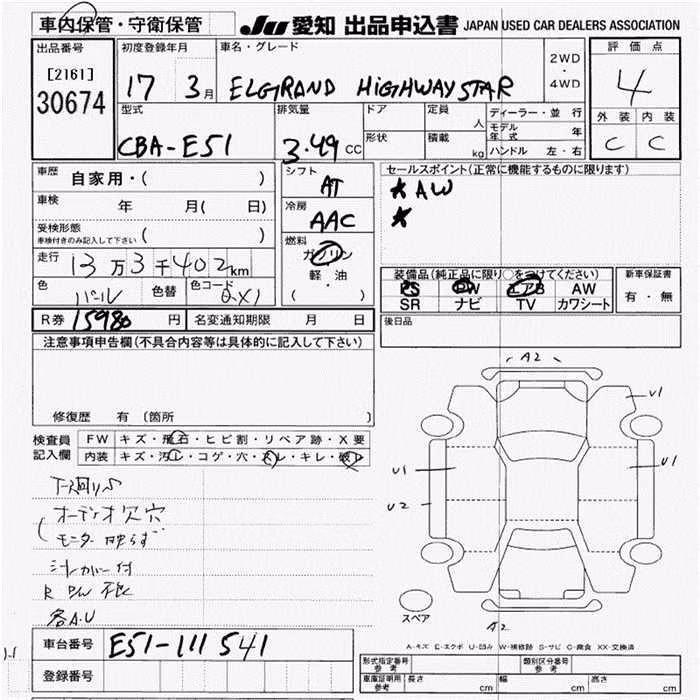 車内保管・守衛保管
JU 愛知 出品申込書 JAPAN USED CAR DEALERS ASSOCIATION
出品番号
[2161]
30674
初度登録年月
17 3月
車名・グレード
ELGRAND HIGHWAYSTAR
2WD
・
4WD
評価点
4
外装 内装
C C
型式
CBA-E51
排気量
3.49 CC
ドア
形状
定員 人
積載 kg
ディーラー・並行
モデル年式 年
ハンドル 左・右
車歴 自家用・( )
車検 年 月( 日)
受検形態 ( )
車検付きのみ記入して下さい
走行 13万3千402km
色 パール 色替 色コード QX1
シフト
AT
冷房
AAC
燃料
ガソリン
軽・油
( )
セールスポイント(正常に機能するものに限ります)
★AW
★
装備品(純正品に限り○をつけてください)
PS PW エアB AW
SR ナビ TV カワシート
新車保証書
有・無
後日品
R券 15980 円 名変通知期限 月 日
注意事項申告欄(不具合内容等は具体的に記入して下さい)
修復歴 有 〔箇所 〕
検査員
記入欄
FW キズ・飛石・ヒビ割・リペア跡・X要
内装 キズ・汚レ・コゲ・穴・スレ・キレ・破レ
下廻りS
オーディオ欠穴
モニター映らず
シートカバー付
R PW 不良
各A.U
A2
U1
U1
U1
U2
A2
スペア
A-キズ E-エクボ U-凹み W-補修跡 S-サビ C-腐食 XX-交換済
車台番号 E51-111541
登録番号
形式指定番号
参考
類別区分番号
参考
車庫証明用
参考
長さ cm 幅 cm 高さ cm